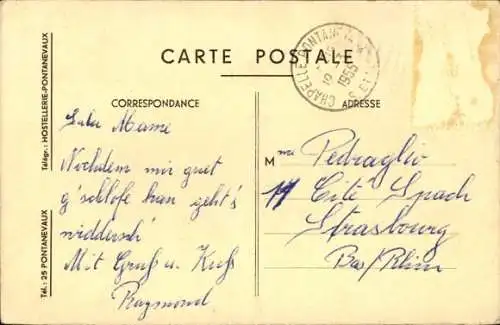 CARTE POSTALE
CORRESPONDANCE
ADRESSE
Télégr.: HOSTELLERIE-PONTANEVAUX
Tél.: 25 PONTANEVAUX
CHAPELLE-PONTANEVAUX
1955
Mame
Nochdem mir guet
g'schlofe han geht's
widdersch'
Mit Gruß u. Kuß
Raymond
Mme Pedraglio
11 Cité Spach
Strasbourg
Bas/Rhin